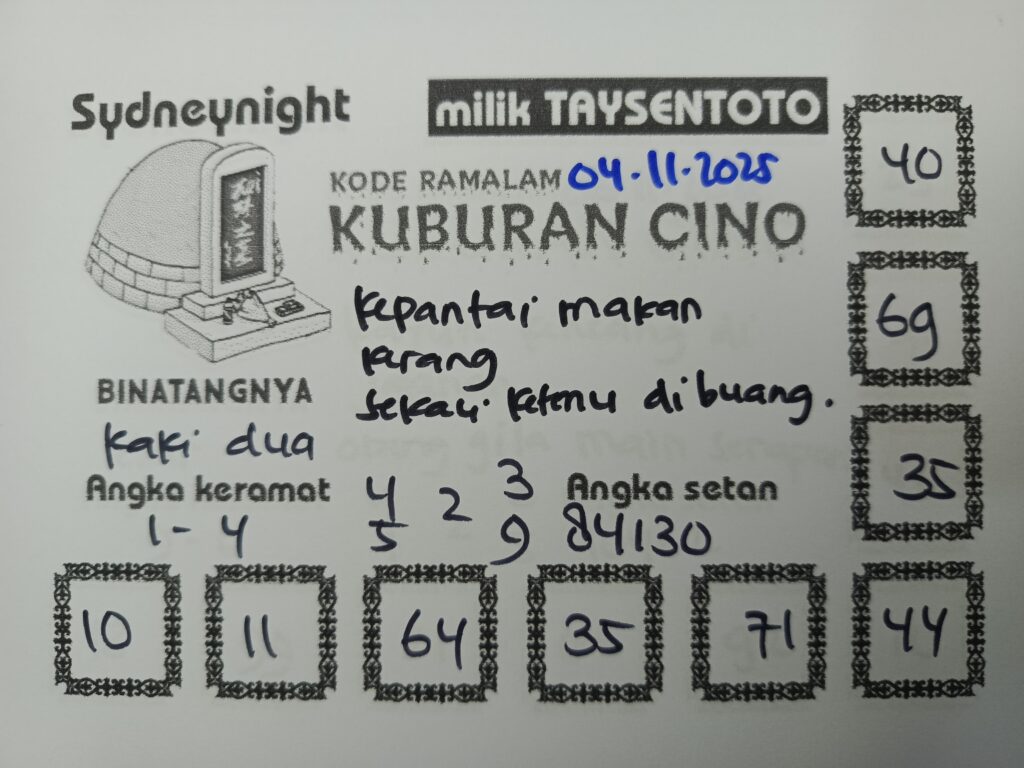 Sydneynight
milik TAYSENTOTO
KODE RAMALAM 04.11.2025
KUBURAN CINO
Kepantai makan
kerang
sekali ketemu dibuang.
BINATANGNYA
kaki dua
Angka keramat
1 - 4
4 2 3
5 9
Angka setan
84130
40
69
35
10 11 64 35 71 44